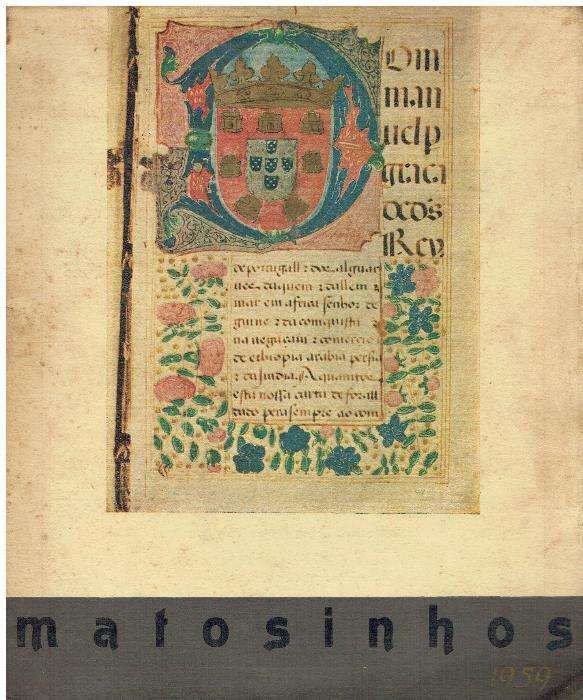 Dm
man
uelp
graca
de d's
Rey
de portugall z dos alguar
ues daquem z dallem
mar em africa senhor de
guine z da comquista
na uegaçam z comercio
de ethiopia arabia persia
z da India. A quantos
esta nossa carta de forall
dado pera sempre ao com
matosinhos
1959